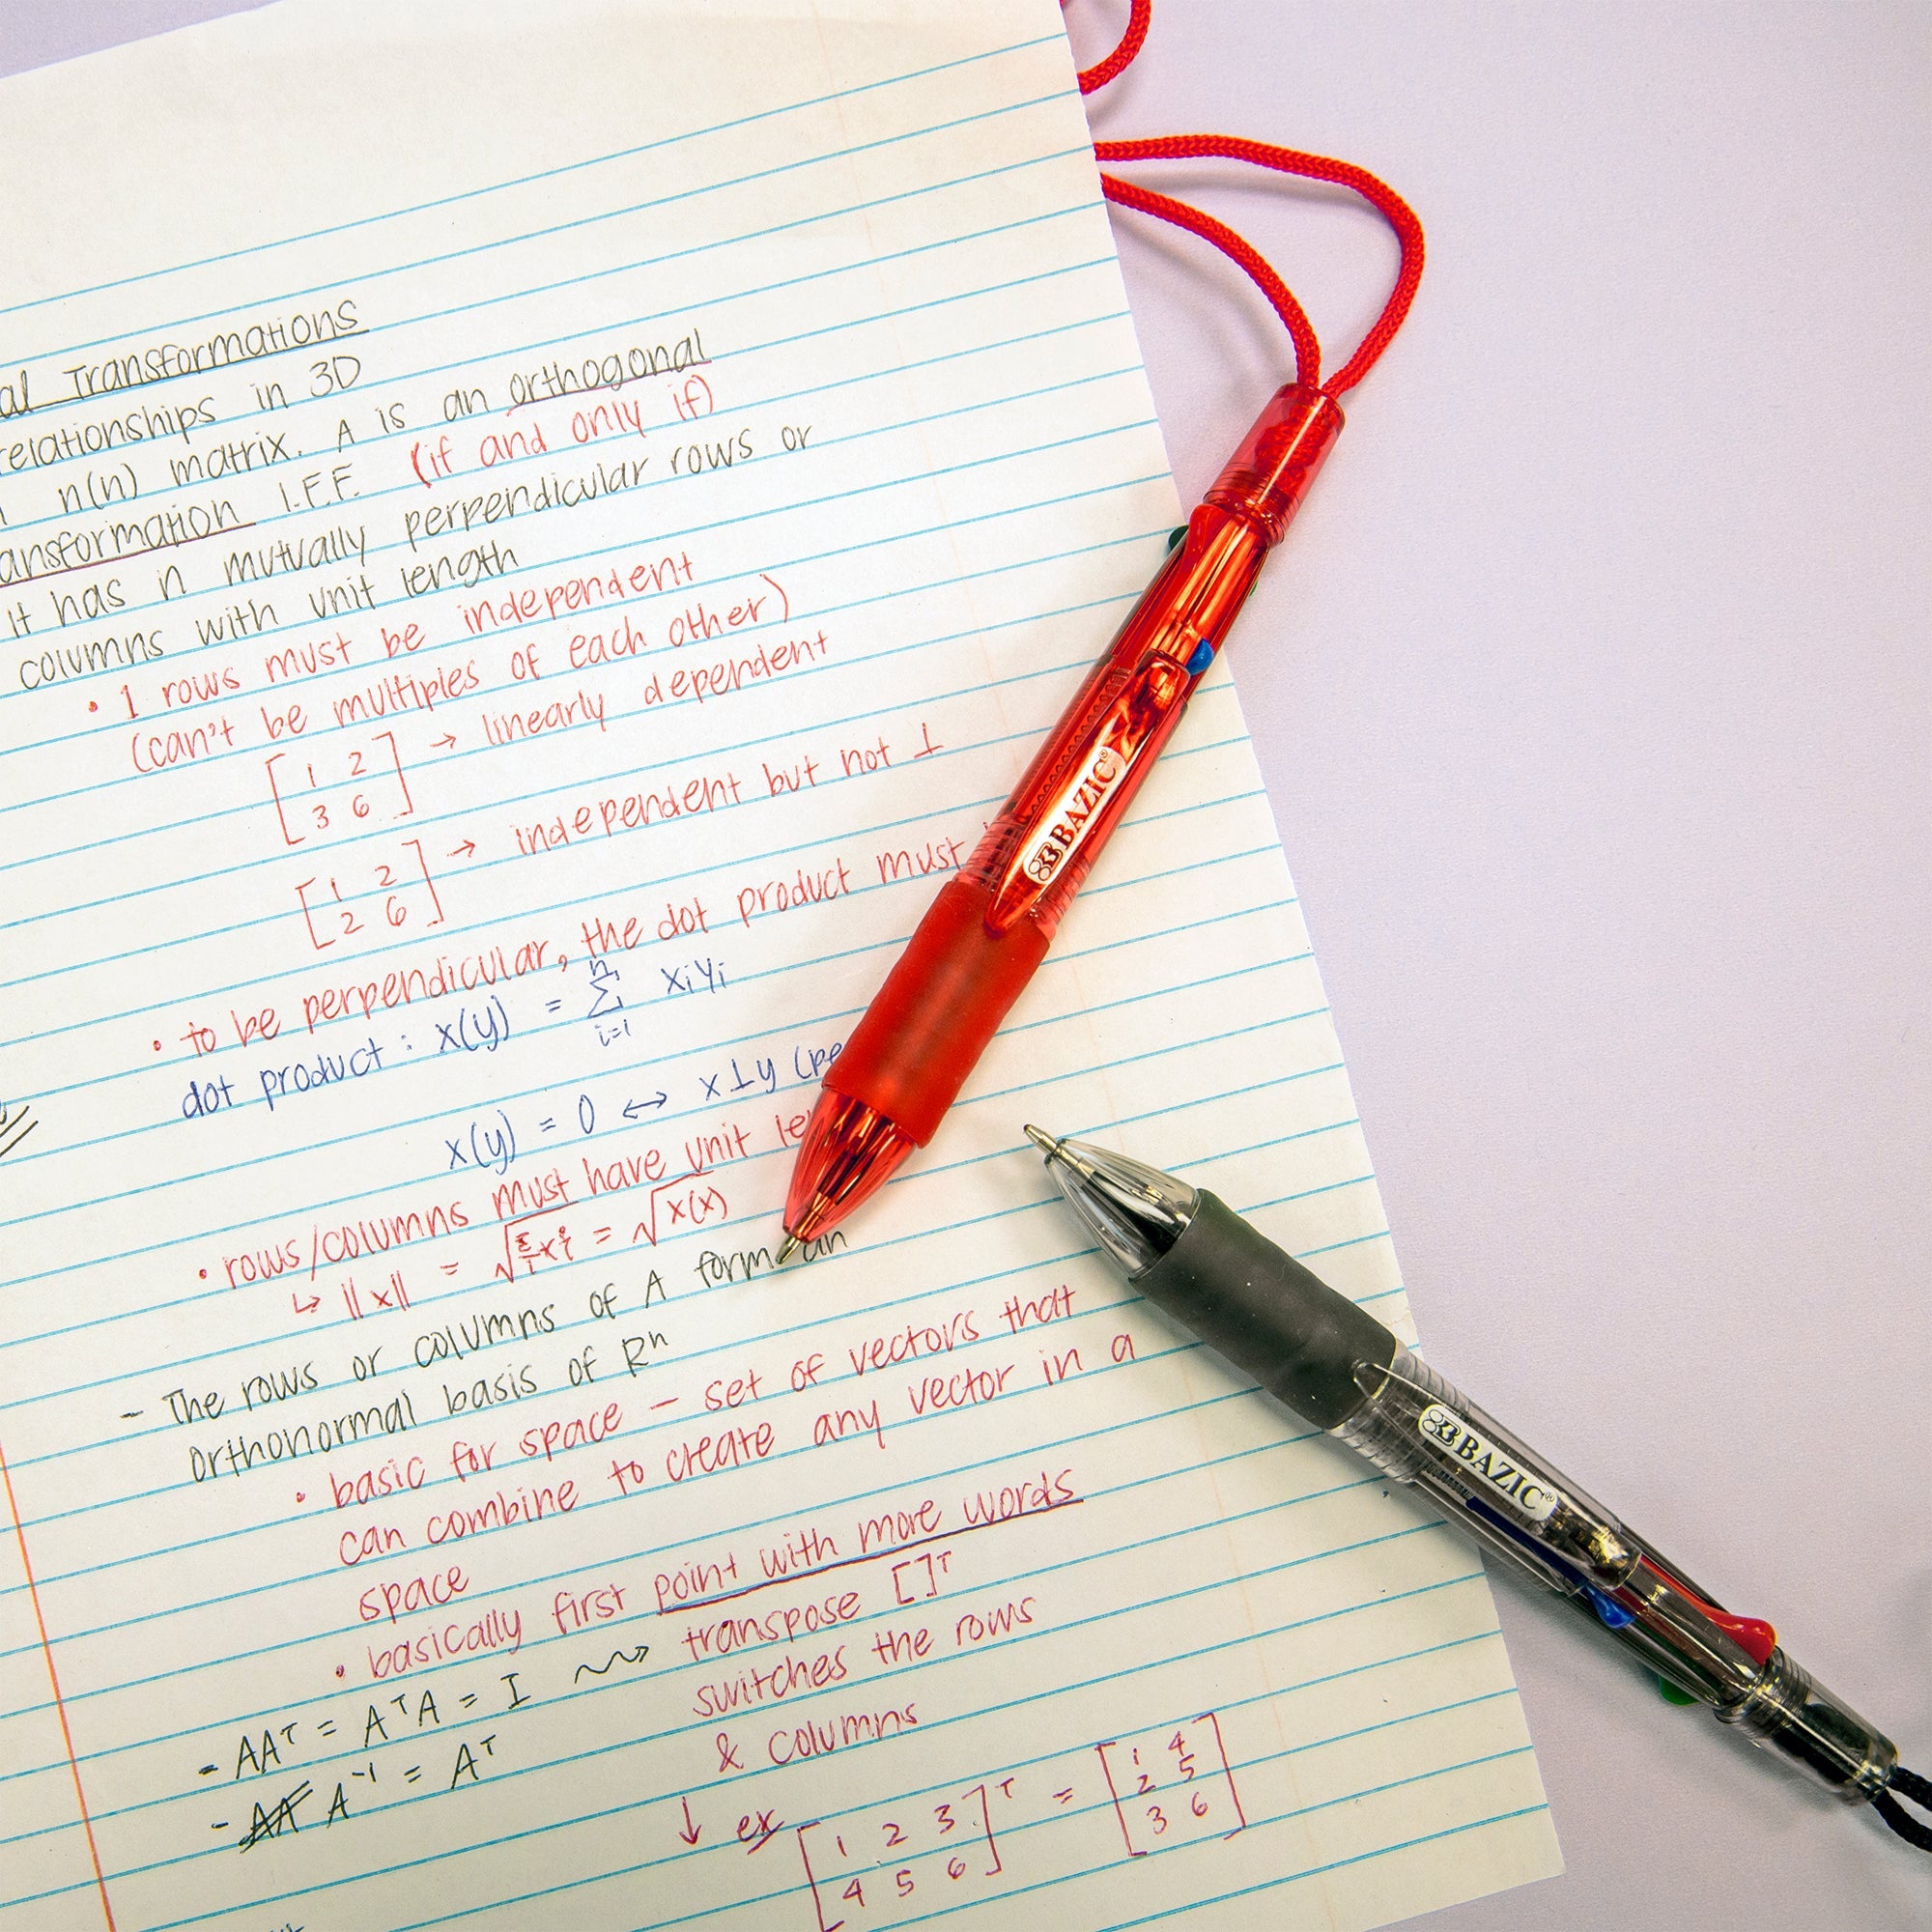 al Transformations
relationships in 3D
n(n) matrix. A is an orthogonal
ansformation I.F.F. (if and only if)
it has n mutually perpendicular rows or
columns with unit length
• 1 rows must be independent
(can't be multiples of each other)
[1 2
3 6] → linearly dependent
[1 2
2 6] → independent but not ⊥
• to be perpendicular, the dot product must
dot product: x(y) = n∑i=1 xiyi
x(y) = 0 ↔ x⊥y (pe
• rows/columns must have unit le
↳ ||x|| = = √x(x)
- The rows or columns of A form an
orthonormal basis of Rⁿ
• basic for space - set of vectors that
can combine to create any vector in a
space
• basically first point with more words
- AAᵀ = AᵀA = I transpose []ᵀ
switches the rows
& columns
- A⁻¹ = Aᵀ
↓ ex
[1 2 3
4 5 6]ᵀ = [1 4
2 5
3 6]
BAZIC®
BAZIC®